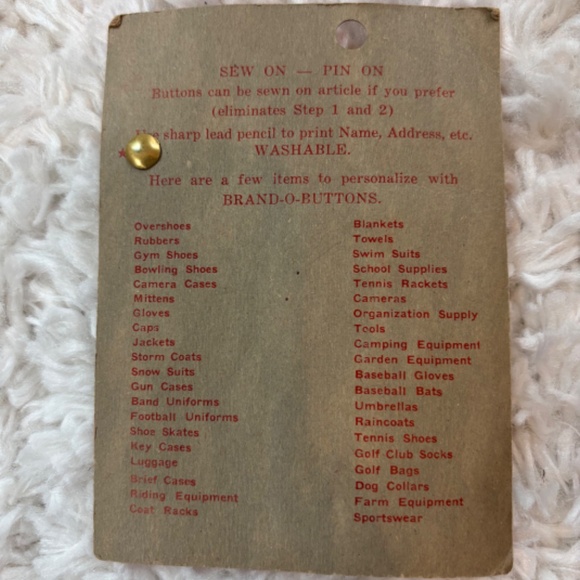 SEW ON — PIN ON
Buttons can be sewn on article if you prefer
(eliminates Step 1 and 2)
sharp lead pencil to print Name, Address, etc.
WASHABLE.
Here are a few items to personalize with
BRAND-O-BUTTONS.
Overshoes
Rubbers
Gym Shoes
Bowling Shoes
Camera Cases
Mittens
Gloves
Caps
Jackets
Storm Coats
Snow Suits
Gun Cases
Band Uniforms
Football Uniforms
Shoe Skates
Key Cases
Luggage
Brief Cases
Riding Equipment
Coat Racks
Blankets
Towels
Swim Suits
School Supplies
Tennis Rackets
Cameras
Organization Supply
Tools
Camping Equipment
Garden Equipment
Baseball Gloves
Baseball Bats
Umbrellas
Raincoats
Tennis Shoes
Golf Club Socks
Golf Bags
Dog Collars
Farm Equipment
Sportswear